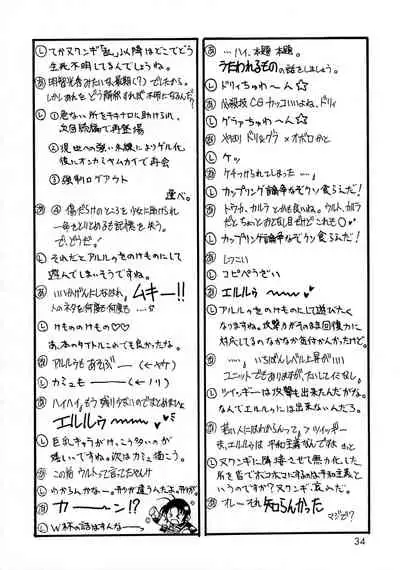 …ハイ、本題 本題。
うたわれるものの話をしましょう。
し ドリィちゅわ〜ん☆
必殺技CGカッコいいよね、ドリィ
し グラァちゅわ〜ん☆
やはりドリィ&グラァ×オボロかと
し ケッ
ケチつけられてしまった…。
し カップリング論争なぞクソ食らえだ!
トウカ、カルラ とかも良いね。ウルト、カルラ
だとちょっとおとなし目だけどこれも○
し カップリング論争なぞクソ食らえだ!
しつこい
し コピペうざい
エルルゥ 〜〜〜♥
し アルルゥをのけものにして遊びたく
なりますね。攻撃力がそのまま回復力に
対応してるのなかなか気付かんかったけど。
…いちばんレベル上昇が
ユニットでもありますが、たいしてイミなし
し ツイッギーは攻撃も出来たんだがな。
なんでエルルゥには出来ないんだろ。
若い人にはわからんって♪>ツイッギー
ま、エルルゥは平和主義なんですね きっと
し ヌワンギに降婆させて無力化した
所を皆でボコボコにするのは平和主義と
いうのですか?ヌワンギ、哀れだ。
オレーそれ知らんかった
マジで?
し てかヌワンギ「乱」以降はどこでどう
生死不明してるんでしょうね。
明智光秀みたいな最期(?)でしたから。
しかしあれをどう解釈すれば不明になるんだ?
し ①危ない所をチキナロに助けられ、
次回続編で再登場
②現世への強い未練によりゲル化
後にオンカミヤムカイで再会
③強制ログアウト
選べ。
④傷だらけのところを少女に助けられ
一命をとりとめるも記憶を失う。
で、どうだ。
し それだとアルルゥをのけものにして
遊んでしまいそうですね。
いいかげんにしなはれ、ムキー!!
人のネタを何度も何度も…。
し けもののけもの♡♡
あ、本のタイトルこれでも良かったな。
アルルゥもあそぶ――(←ヤケ)
し カミュも――(←ノリ)
ハイハイ、もう残り少ないのでまとめまっせ
エルルゥ 〜〜♥
し 巨乳キャラがけっこう多いのが
嬉しいですね。次はカミュ描こう。
この前 ウルトって言ってたやんけ
し わからんかなー。形が違うんだよ、形が。
カ――ン!?
し W杯の話はすんなー
34